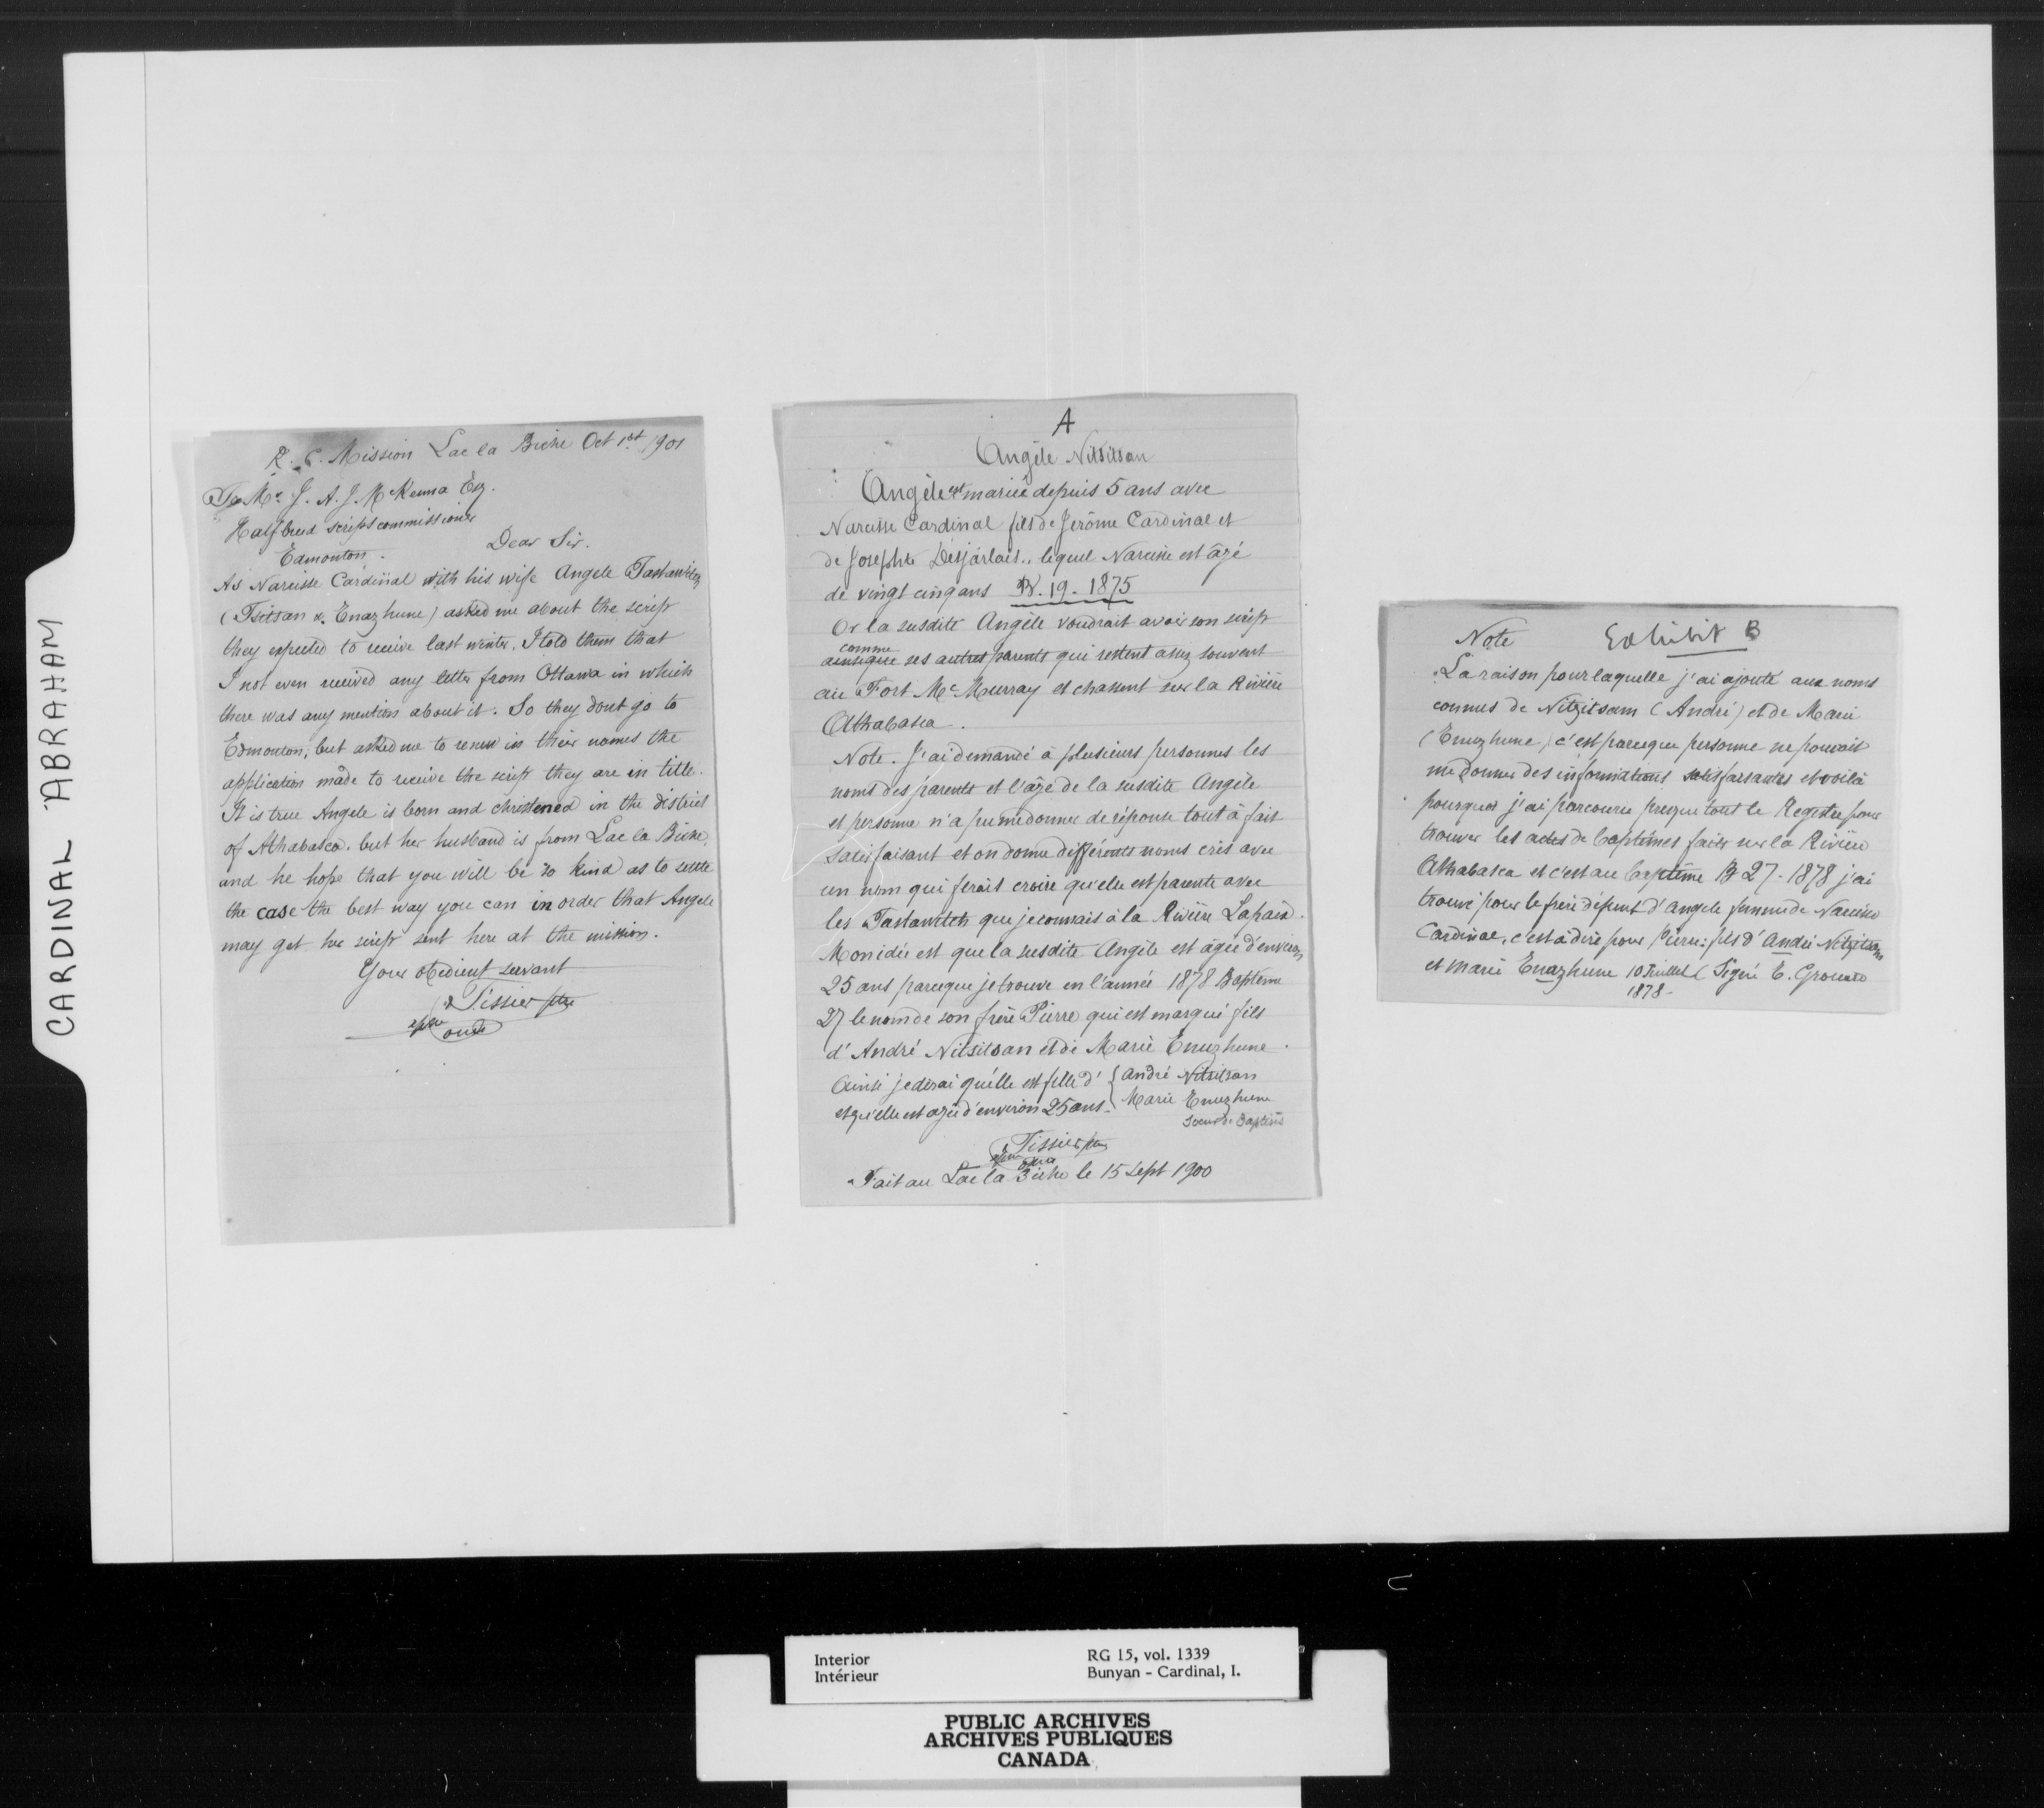 CARDINAL ABRAHAM
R. C. Mission Lac la Biche Oct 1st 1901
To Mr J. A. J. McKenna Esq.
Halfbreed scrips commissioner
Edmonton.
Dear Sir.
As Narcisse Cardinal with his wife Angele
(Tsitsan & Enazhune) asked me about the scrip
they expected to receive last winter, I told them that
I not even received any letter from Ottawa in which
there was any mention about it. So they dont go to
Edmonton, but asked me to renew in their names the
application made to receive the scrip they are in title.
It is true Angele is born and christened in the district
of Athabasca, but her husband is from Lac la Biche,
and he hope that you will be so kind as to settle
the case the best way you can in order that Angele
may get her scrip sent here at the mission.
Your obedient servant
Tissier ptre
A
Angèle Nitsitsan
Angèle est mariée depuis 5 ans avec
Narcisse Cardinal fils de Jerôme Cardinal et
de Josephte Desjarlais.. lequel Narcisse est âgé
de vingt cinq ans B. 19. 1875
Or la susdite Angèle voudrait avoir son scrip
comme
ainsi que ses autres parents qui restent assez souvent
au Fort McMurray et chassent sur la Rivière
Athabasca.
Note. J'ai demandé à plusieurs personnes les
noms des parents et l'âge de la susdite Angèle
et personne n'a pu me donner de réponse tout à fait
satisfaisant et on donne différents noms cris avec
un nom qui ferait croire qu'elle est parente avec
les que je connais à la Rivière Lapaix.
Mon idée est que la susdite Angèle est âgée d'environ
25 ans parceque je trouve en l'année 1878 Baptême
27 le nom de son frère Pierre qui est marqué fils
d'André Nitsitsan et de Marie Enuzhune.
Ainsi je dirai qu'elle est fille d' { André Nitsitsan
et qu'elle est agée d'environ 25 ans. { Marie Enuzhune
Tissier ptre
Fait au Lac la Biche le 15 Sept 1900
Note Exhibit B
La raison pour laquelle j'ai ajouté aux noms
connus de Nitzitsan (André) et de Marie
(Enuzhune) c'est parceque personne ne pouvait
me donner des informations satisfaisantes et voilà
pourquoi j'ai parcouru presque tout le Registre pour
trouver les actes de baptêmes faits sur la Rivière
Athabasca et c'est au baptême B 27 - 1878 j'ai
trouvé pour le frère défunt d'Angele femme de Narcisse
Cardinal, c'est à dire pour Pierre: fils d'André Nitzitsan
et Marie Enazhune 10 Juillet (Signé E. Grouard
1878-
Interior RG 15, vol. 1339
Intérieur Bunyan - Cardinal, I.
PUBLIC ARCHIVES
ARCHIVES PUBLIQUES
CANADA